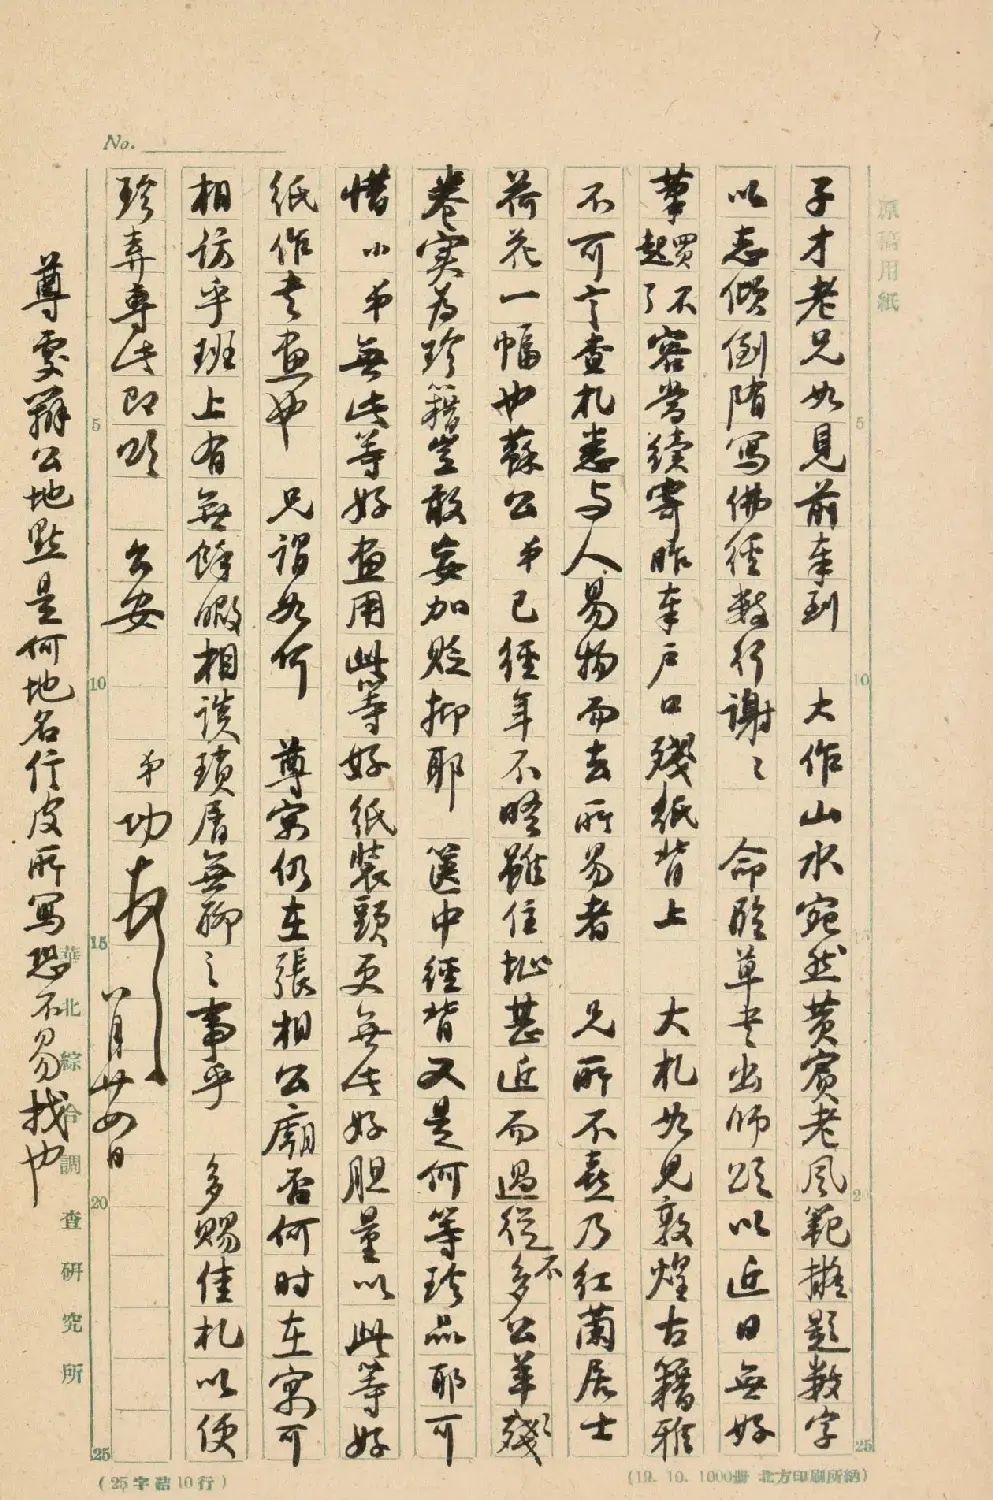 No.
原稿用紙
子才老兄如見前奉到 大作山水宛然黄賓老風範擬題数字
以志傾倒隋写佛径数行謝〻 命臨草书出师颂以近日無好
筆買不起了容當續寄昨奉户口殘紙背上 大札如見敦煌古籍雅
不可言查札悉与人易物而去所易者 兄所不喜乃红蘭居士
荷花一幅也蘇公弟已經年不晤雖住址甚近而過從不多公葉殘
卷实为珍籍豈敢妄加贬抑耶 篋中經背又是何等珍品耶可
惜小弟無此等好画用此等好紙裝頭更無此好胆量以此等好
紙作书画也 兄謂如何 尊寓仍在張相公廟否何时在寓可
相访乎班上有無餘暇相談瑣屑無聊之事乎 多赐佳札以便
珍弆專此即颂 公安
弟功 八月廿四日
尊處辦公地點是何地名信皮所写恐不易找也
華北綜合調查研究所
5
10
15
20
25
5
10
15
2
25
(25字詰10行)
(19. 10. 1000册 北方印刷所納)